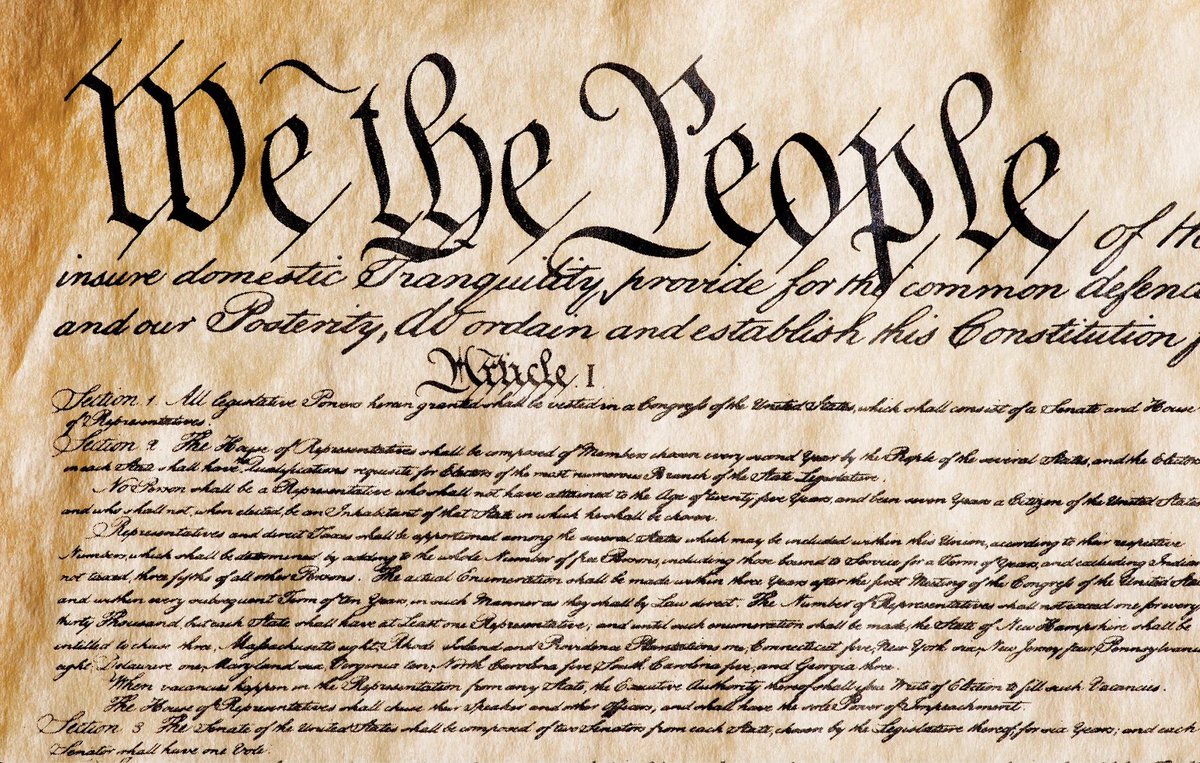 We the People of the
insure domestic Tranquility, provide for the common defenc
and our Posterity, do ordain and establish this Constitution f
Article. I.
Section. 1. All legislative Powers herein granted shall be vested in a Congress of the United States, which shall consist of a Senate and House
of Representatives.
Section. 2. The House of Representatives shall be composed of Members chosen every second Year by the People of the several States, and the Electors
in each State shall have the Qualifications requisite for Electors of the most numerous Branch of the State Legislature.
No Person shall be a Representative who shall not have attained to the Age of twenty five Years, and been seven Years a Citizen of the United States
and who shall not, when elected, be an Inhabitant of that State in which he shall be chosen.
Representatives and direct Taxes shall be apportioned among the several States which may be included within this Union, according to their respective
Numbers, which shall be determined by adding to the whole Number of free Persons, including those bound to Service for a Term of Years, and excluding Indian
not taxed, three fifths of all other Persons. The actual Enumeration shall be made within three Years after the first Meeting of the Congress of the United Stat
and within every subsequent Term of ten Years, in such Manner as they shall by Law direct. The Number of Representatives shall not exceed one for every
thirty Thousand, but each State shall have at Least one Representative; and until such enumeration shall be made, the State of New Hampshire shall be
entitled to chuse three, Massachusetts eight, Rhode Island and Providence Plantations one, Connecticut five, New York six, New Jersey four, Pennsylvania
eight, Delaware one, Maryland six, Virginia ten, North Carolina five, South Carolina five, and Georgia three.
When vacancies happen in the Representation from any State, the Executive Authority thereof shall issue Writs of Election to fill such Vacancies.
The House of Representatives shall chuse their Speaker and other Officers, and shall have the sole Power of Impeachment.
Section. 3. The Senate of the United States shall be composed of two Senators from each State, chosen by the Legislature thereof, for six Years; and each
Senator shall have one Vote.